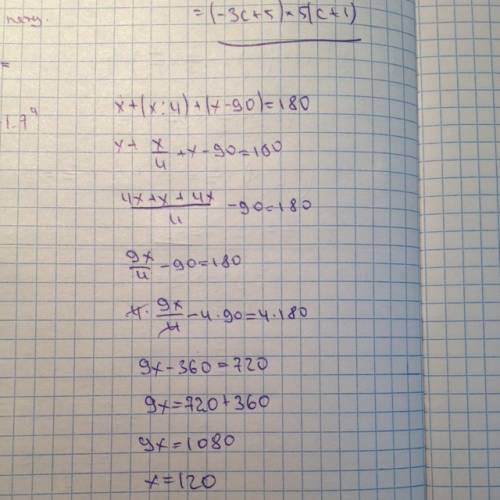 = (-3c+5) × 5(c+1)
=
x+(x:4)+(x-90)=180
x+ x/4 +x-90=180
4x+x+4x/4 -90=180
9x/4 -90=180
4· 9x/4 -4·90=4·180
9x-360=720
9x=720+360
9x=1080
x=120